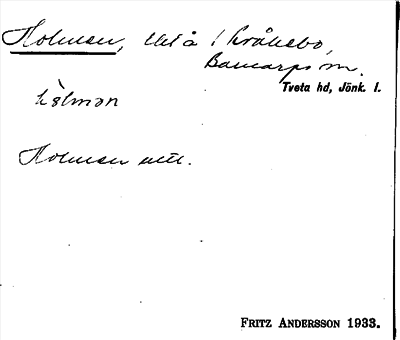 Holmen, Utå i Kråkebo,
Barnarps sn.
Tveta hd, Jönk. l.
hòlmən
Holmen
FRITZ ANDERSSON 1933.